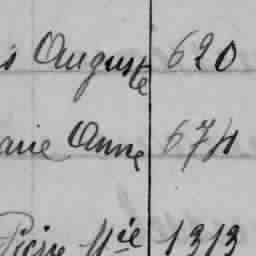 s Auguste 620
arie Anne 674
Pierre Mie 1313